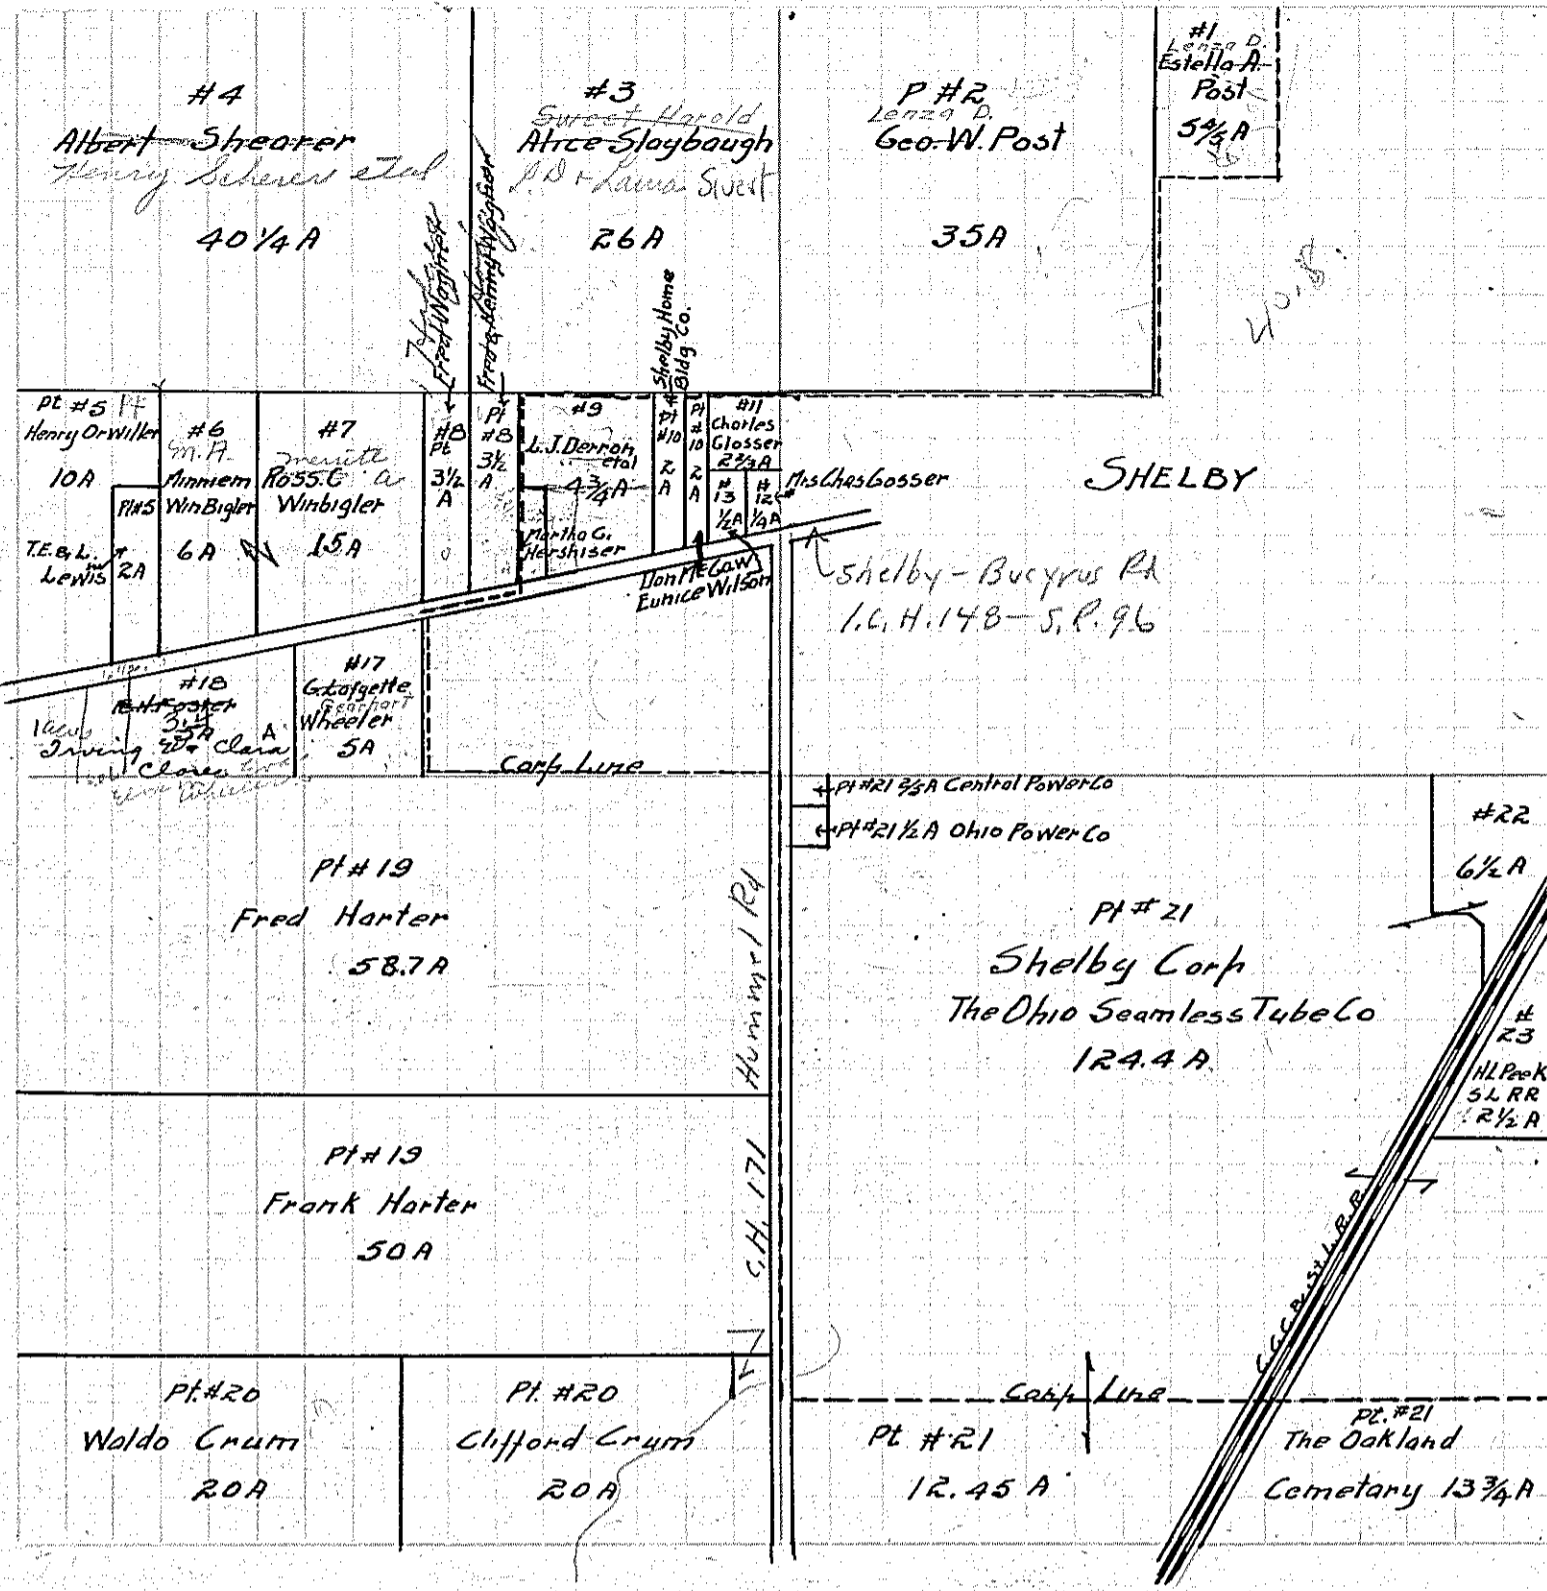 #4
Albert Shearer
Henry Scherer etal
40 1/4 A
#3
Sweet Harold
Alice Slaybaugh
26 A
P #2
Lenza D.
Geo. W. Post
35 A
#1
Lenza D.
Estella A.
Post
5 4/5 A
40.8
Fred Wagner
Fred & Henry Wagner
Shelby Home
Bldg. Co.
Pt #5 Pt
Henry Orwiller
10 A
Pt #5
T.E. & L.
Lewis
2A
#6
M.A.
Minnie M
WinBigler
6 A
#7
Merritt
Ross. C. a
Winbigler
15 A
#8
Pt
3 1/2
A
Pt
#8
3 1/2
A
#9
L.J. Derron
etal
4 3/4 A
Martha G.
Hershiser
Pt
#10
2
A
Pt
#
10
2
A
#11
Charles
Glosser
2 2/3 A
#
13
1/2 A
#
12
1/4 A
Mrs Chas Gosser
Don McCaw
Eunice Wilson
SHELBY
Shelby - Bucyrus Rd
I.C.H. 148 - S.R. 96
#18
E.H. Foster
A
Irving & Clara
Clores
#17
G. Lafayette
Gearhart
Wheeler
5A
Corp Line
Pt #21 2/5 A Central Power Co
Pt #21 1/2 A Ohio Power Co
#22
6 1/2 A
Pt #19
Fred Harter
58.7 A
Hummel Rd
Pt #21
Shelby Corp
The Ohio Seamless Tube Co
124.4 A
#
23
HL Peek
SL RR
2 1/2 A
Pt #19
Frank Harter
50 A
C.H. 171
C.C.C. & St. L. R.R.
Pt. #20
Waldo Crum
20A
Pt. #20
Clifford Crum
20A
Corp Line
Pt #21
12.45 A
Pt. #21
The Oakland
Cemetary 13 3/4 A